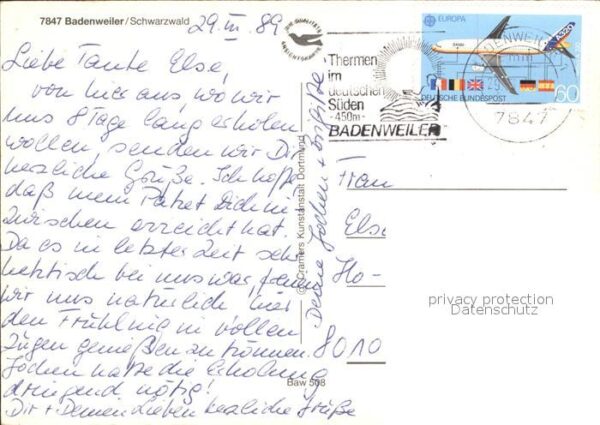 7847 Badenweiler/Schwarzwald
29. III. 89
Liebe Tante Else,
von hier aus, wo wir
uns 8 Tage lang erholen
wollen, senden wir Dir
herzliche Grüße. Ich hoffe
daß mein Paket Dich in-
zwischen erreicht hat.
Da es in letzter Zeit sehr
hektisch bei uns war, freuen
wir uns natürlich hier
den Frühling in vollen
Zügen genießen zu können.
Jochen hatte die Erholung
dringend nötig!
Dir + Deinen Lieben herzliche Grüße
Deine Jochen +
© Cramers Kunstanstalt Dortmund
Baw 508
Thermen
im
deutschen
Süden
-450m-
BADENWEILER
EUROPA
A320
DEUTSCHE BUNDESPOST
60
BADENWEILER
7847
Frau
Else
Ho-
8010
privacy protection
Datenschutz